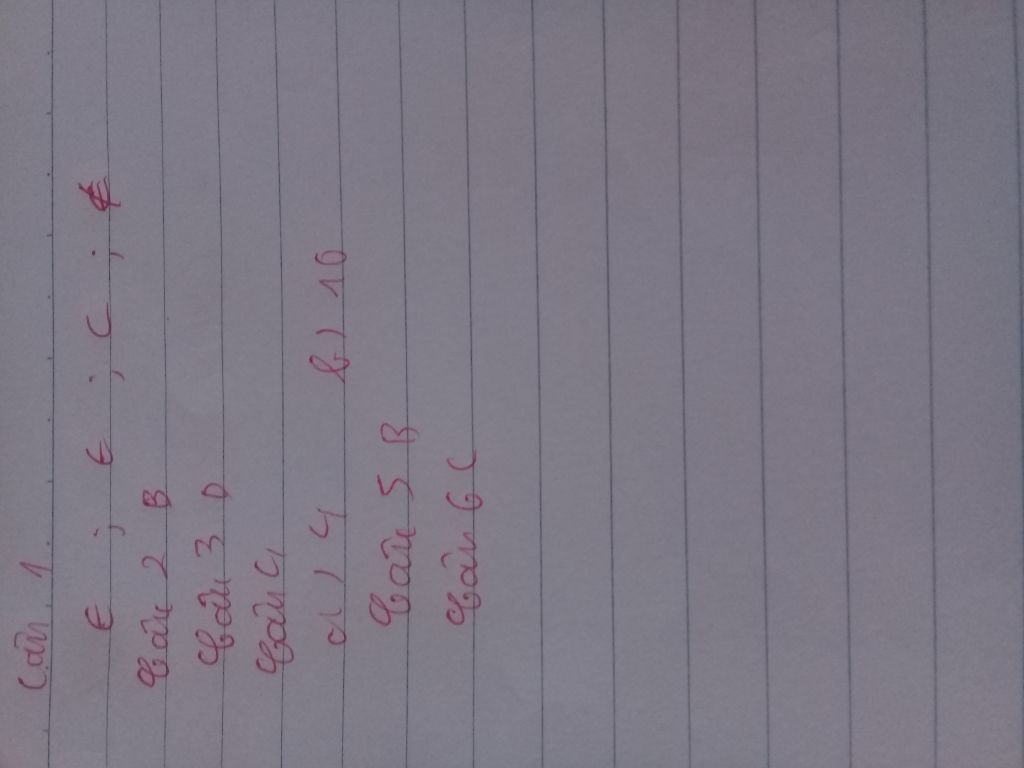 Câu 1
∈ ; ∈ ; ⊂ ; ∉
Câu 2 B
Câu 3 D
Câu 4
a) 4 b) 10
Câu 5 B
Câu 6 C